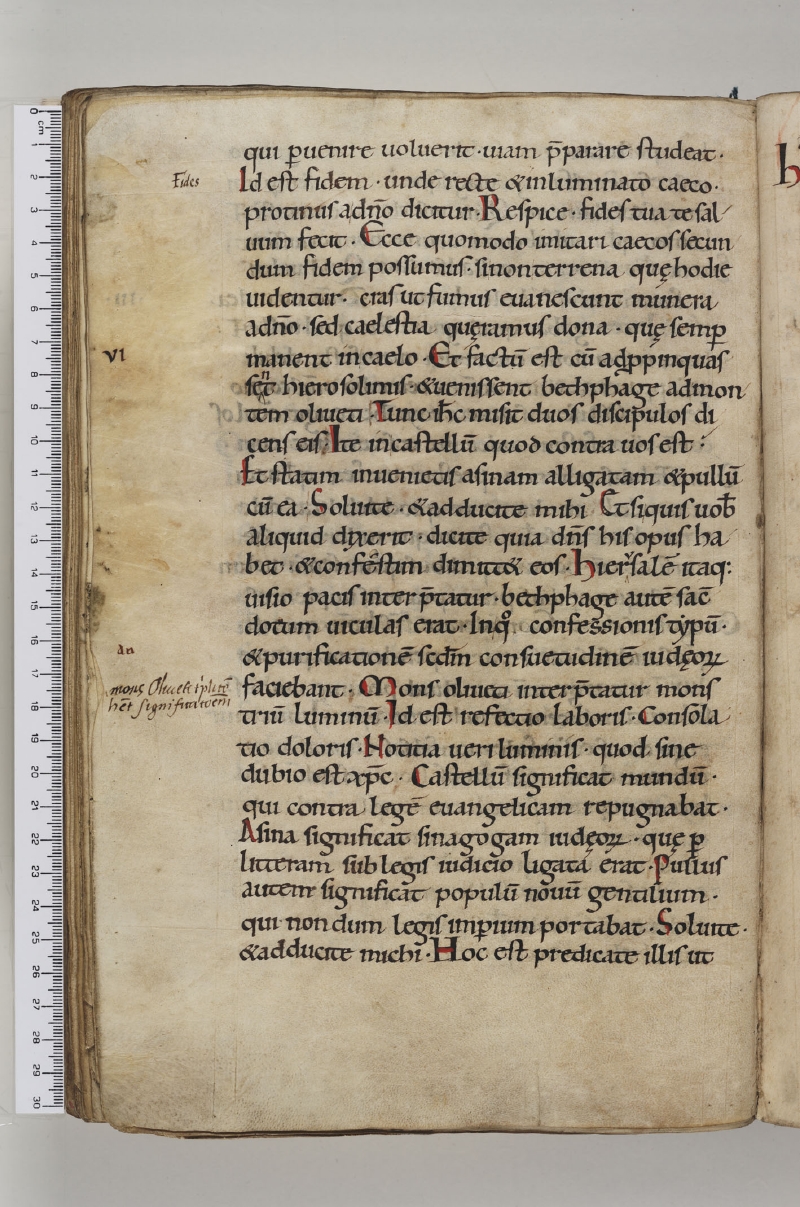 qui ꝑuenire uoluerit · uiam p̄parare studeat ·
Fides
Id est fidem · unde recte & inluminato caeco ·
protinus adño dicitur · Respice · fides tua te sal
uum fecit · Ecce quomodo imitari caecos secun
dum fidem possumus · si non terrena quę hodie
uidentur · cras ut fumus euanescunt munera
adño · sed caelestia quęramus dona · quę semꝑ
VI
manent in caelo · Et factū est cū adꝓpinquas
set hierosolimis · & uenissent bethphage admon
tem oliueti · Tunc ihc misit duos discipulos di
cens eis · Ite incastellū quod contra uos est :
Et statim inuenietis asinam alligatam & pullū
cū ea · Soluite · & adducite mihi Et siquis uob̄
aliquid dixerit · dicite quia dñs his opus ha
bet · & confestim dimitt& eos · Hierłsalē itaq:
uisio pacis interp̄tatur · bethphage autē sac̄
dotum uiculas erat · Inq° confessionis typū ·
& purificationē scdm̄ consuetudinē iudęoꝝ
mons Oliueti
faciebant · Mons oliueti interp̄tatur mons
triū luminū · Id est refectio laboris · Consola
tio doloris · Notitia ueri luminis · quod sine
dubio est xp̄c · Castellū significat mundū ·
qui contra legē euangelicam repugnabat ·
Asina significat sinagogam iudęoꝝ · quę ꝑ
litteram sub legis iudicio ligata erat · Pullus
autem significat populū nouū gentilium ·
qui non dum legis imꝑium portabat · Soluite ·
& adducite michi · Hoc est predicate illis ut